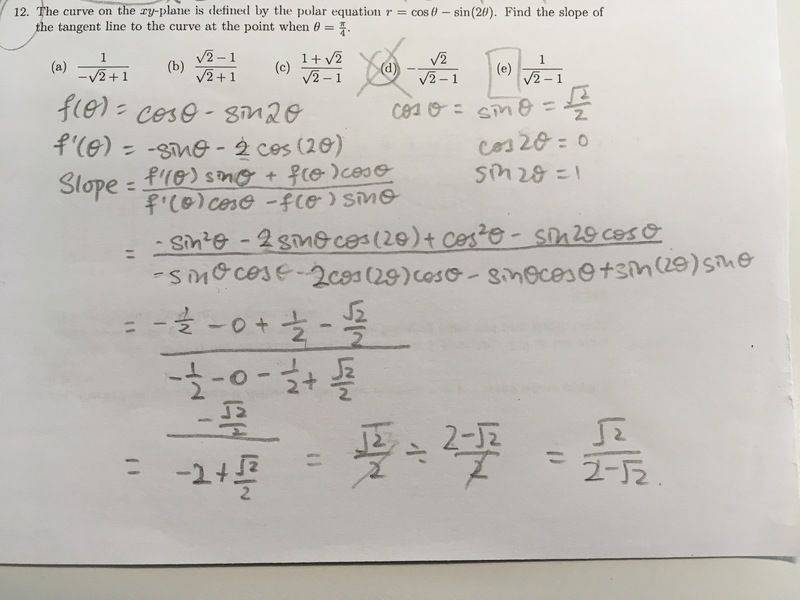 12. The curve on the xy-plane is defined by the polar equation r = cos θ − sin(2θ). Find the slope of
the tangent line to the curve at the point when θ = π/4.
(a) 1/(−√2 + 1) (b) (√2 − 1)/(√2 + 1) (c) (1 + √2)/(√2 − 1) (d) −√2/(√2 − 1) (e) 1/(√2 − 1)
f(θ) = cosθ - sin2θ cosθ = sinθ = √2/2
f'(θ) = -sinθ - 2 cos(2θ) cos2θ = 0
Slope = (f'(θ) sinθ + f(θ)cosθ)/(f'(θ)cosθ - f(θ) sinθ) sin2θ = 1
= (-sin²θ - 2sinθcos(2θ) + cos²θ - sin2θcosθ)/(-sinθcosθ - 2cos(2θ)cosθ - sinθcosθ + sin(2θ)sinθ)
= (-1/2 - 0 + 1/2 - √2/2)/(-1/2 - 0 - 1/2 + √2/2)
= (-√2/2)/(-2 + √2/2) = √2/2 ÷ (2-√2)/2 = √2/(2-√2).